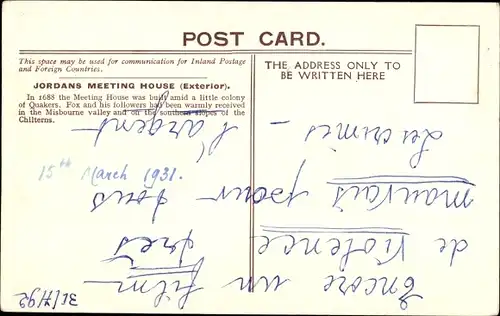 POST CARD.
This space may be used for communication for Inland Postage
and Foreign Countries.
JORDANS MEETING HOUSE (Exterior).
In 1688 the Meeting House was built amid a little colony
of Quakers. Fox and his followers had been warmly received
in the Misbourne valley and on the southern slopes of the
Chilterns.
THE ADDRESS ONLY TO
BE WRITTEN HERE
15th March 1931.
Encore un film
de violence très
mauvais pour tous
Les crimes – l'argent –